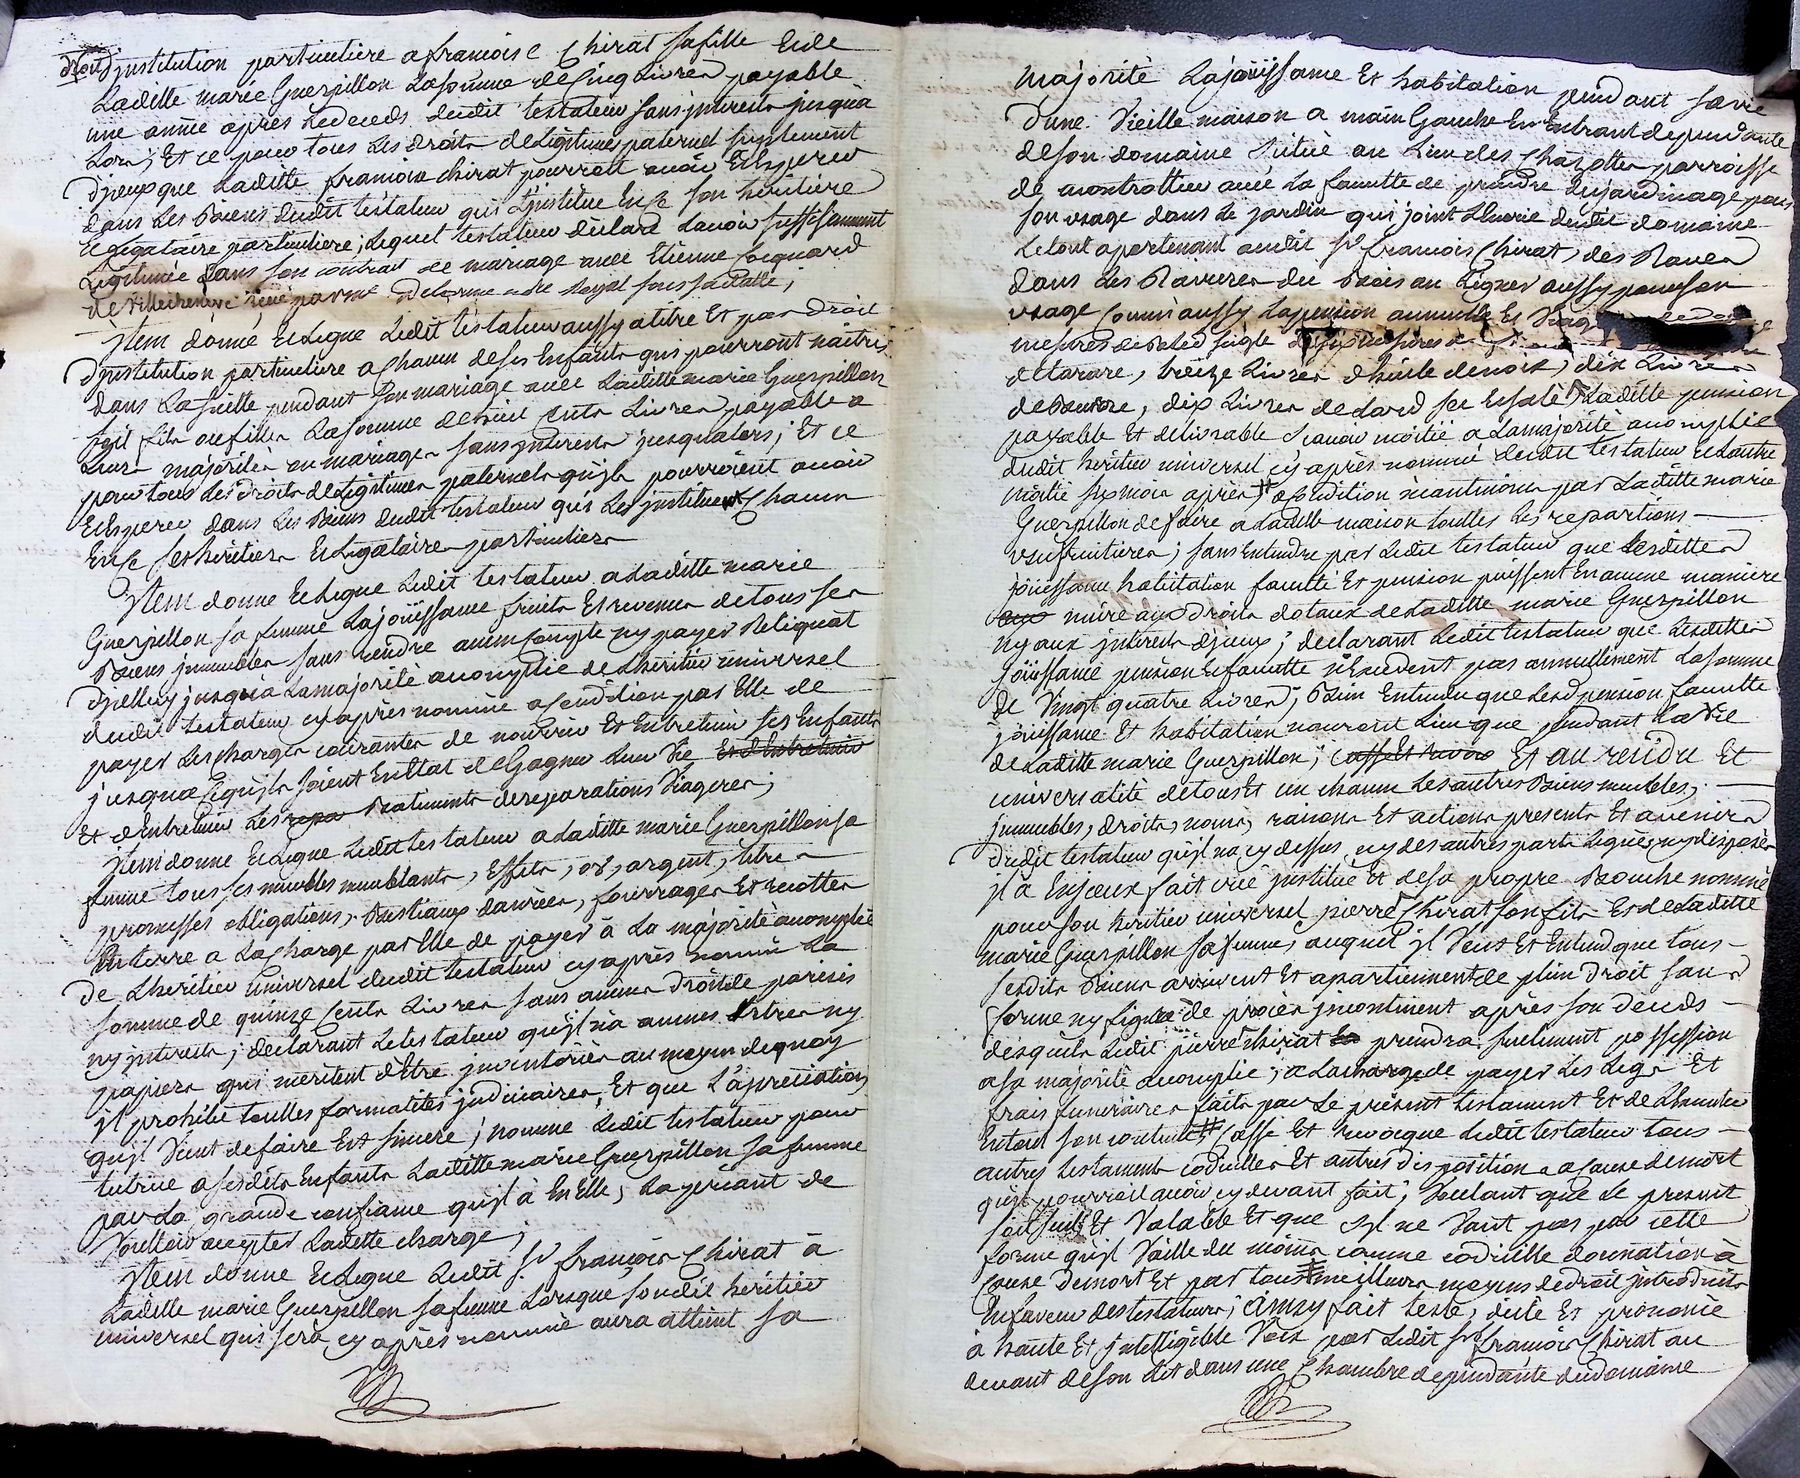 droit d'jnstitution particuliere a francoise Chirat sa fille Et de
Laditte marie Guerpillon La somme de Cinq Livres payable
une année apres Le deceds dudit testateur sans jnterests jusqu'a
Lors; Et ce pour tous Les droits de Legitimes paternel suplement
d'jceux que Laditte francoise chirat pourroit avoir Et Esperer
dans Les Biens dudit testateur qui L'jnstitue En ce son héritiere
Et Legataire particuliere; Lequel testateur déclare L'avoir suffisamment
Legitimée dans son contrat de mariage avec Etienne Coquard
de Villechenève reçu par me Delorme no.re Royal sous sa datte;
jtem donne Et Legue Ledit testateur aussy a titre Et par droit
d'jnstitution particuliere a Chacun de ses Enfants qui pourront naitre
dans La suitte pendant son mariage avec Laditte marie Guerpillon
soit fils ou filles La somme de mil Cents Livres payable a
Leurs majorités ou mariages sans jnterests jusqu'alors; Et ce
pour tous Les droits de Legitimes paternels qu'jls pourroient avoir
Et Esperer dans Les Biens dudit testateur qui Les jnstituent Chacun
En ce ses héritiers Et Legataires particuliers
jtem donne Et Legue Ledit testateur a Laditte marie
Guerpillon sa femme La jouïssance fruits Et revenus de tous ses
Biens jmmeubles sans rendre aucun Compte ny payer Reliquat
d'jcelluy jusqu'à La majorité acomplie de L'héritier universel
dudit testateur cy après nommé a condition par Elle de
payer Les charges courantes de nourrir Et Entretenir ses Enfants
jusqu'a ce qu'jls soient En Etat de Gagner Leur Vie Et d'Entretenir
Et d'Entretenir Les repa Batiments de reparations Viageres;
jtem donne Et Legue Ledit testateur a Laditte marie Guerpillon sa
femme tous ses meubles meublants, Effets, or, argent, titres
promesses obligations, Bestiaux danrées, fourrages Et recoltes
En terre a La charge par Elle de payer à La majorité acomplie
de L'héritier Universel dudit testateur cy après nommé La
somme de quinze Cents Livres sans aucuns droits de parisis
ny jnterests; declarant Le testateur qu'jl n'a aucuns titres ny
papiers qui meritent d'être jnventoriés au moyen de quoy
jl prohibe touttes formalités judiciaires, Et que L'apreciation
qu'jl Vient de faire Est sincere; nomme Ledit testateur pour
tutrice a sesdits Enfants Laditte marie Guerpillon sa femme
par La grande confiance qu'jl à En Elle; La priant de
Vouloir accepter Laditte charge;
jtem donne Et Legue Ledit sr francois Chirat à
Laditte marie Guerpillon sa femme Lorsque sondit héritier
universel qui sera cy après nommé aura atteint sa
majorité La jouïssance Et habitation pendant sa vie
d'une Vieille maison a main Gauche En Entrant dependante
de son domaine situé au Lieu des Charottes parroisse
de montrottier avec La faculté de prendre du jardinage pour
son usage dans Le jardin qui joint L'Ecurie dudit domaine
Le tout apartenant audit sr francois Chirat, des Raves
dans Les Ravieres du Bois au Ligner aussy pour son
usage Comm'aussy La pension annuelle Et Viag
mesures de Bled seigle
de tarare, treize Livres d'huile de noix, dix Livres
de Beurre, dix Livres de Lard sec Et salé Laditte pension
payable Et delivrable Scavoir moitié a La majorité acomplie
dudit héritier universel cy après nommé dudit testateur Et L'autre
moitié six mois après # a condition neantmoins par Laditte marie
Guerpillon de faire a Laditte maison touttes Les reparations
usufruitieres; sans Entendre par Ledit testateur que Lesdittes
jouïssance habitation faculté Et pension puissent En aucune maniere
nuire aux droits dotaux de Laditte marie Guerpillon
ny aux jnterests d'jceux; declarant Ledit testateur que Lesdittes
jouïssance pension Et faculté n'Excedent pas annuellement La somme
de Vingt quatre Livres; Bien Entendu que Lesd pension, faculté
jouïssance Et habitation n'auront Lieu que pendant La Vie
de Laditte marie Guerpillon; Casse Et revoc Et au residu Et
universalité de tous Et un chacun Les autres Biens meubles,
jmmeubles, droits, noms, raisons Et actions presents Et avenirs
dudit testateur qu'jl n'a cy dessus ny des autres parts Legués ny disposés
jl a En jceux fait créé jnstitué Et de sa propre Bouche nommé
pour son héritier universel pierre Chirat son fils Et de Laditte
marie Guerpillon sa femme, auquel jl Veut Et Entend que tous
sesdits Biens arrivent Et apartiennent de plein droit sans
forme ny figure de procès jncontinent après son deceds
desquels Ledit pierre Chirat prendra seulement possession
a sa majorité acomplie; a La charge de payer Les Legs Et
frais funeraires faits par Le présent testament Et de L'Executer
En tout son contenu # Casse Et revocque Ledit testateur tous
autres testaments codicilles Et autres dispositions a cause de mort
qu'jl pourroit avoir cy devant fait; Voulant que Le present
soit seul Et Valable Et que s'jl ne Vaut pas par cette
forme qu'jl Vaille du moins comme codicille donnation à
Cause de mort Et par tous meilleurs moyens de droit jntroduits
En faveur des testateurs; Ainsy fait testé, dicté Et prononcé
à haute Et jntelligible Voix par Ledit sr francois Chirat au
devant de son Lit dans une Chambre dependante du domaine